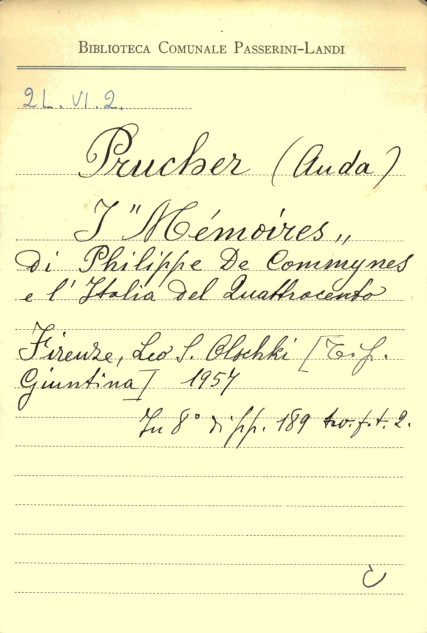 BIBLIOTECA COMUNALE PASSERINI-LANDI
2L. VI. 2.
Prucher (Auda)
I "Mémoires„
di Philippe De Commynes
e l'Italia del Quattrocento
Firenze, Leo S. Olschki [Tip.
Giuntina] 1957
In 8° di pp. 189 tav. f. t. 2.
C